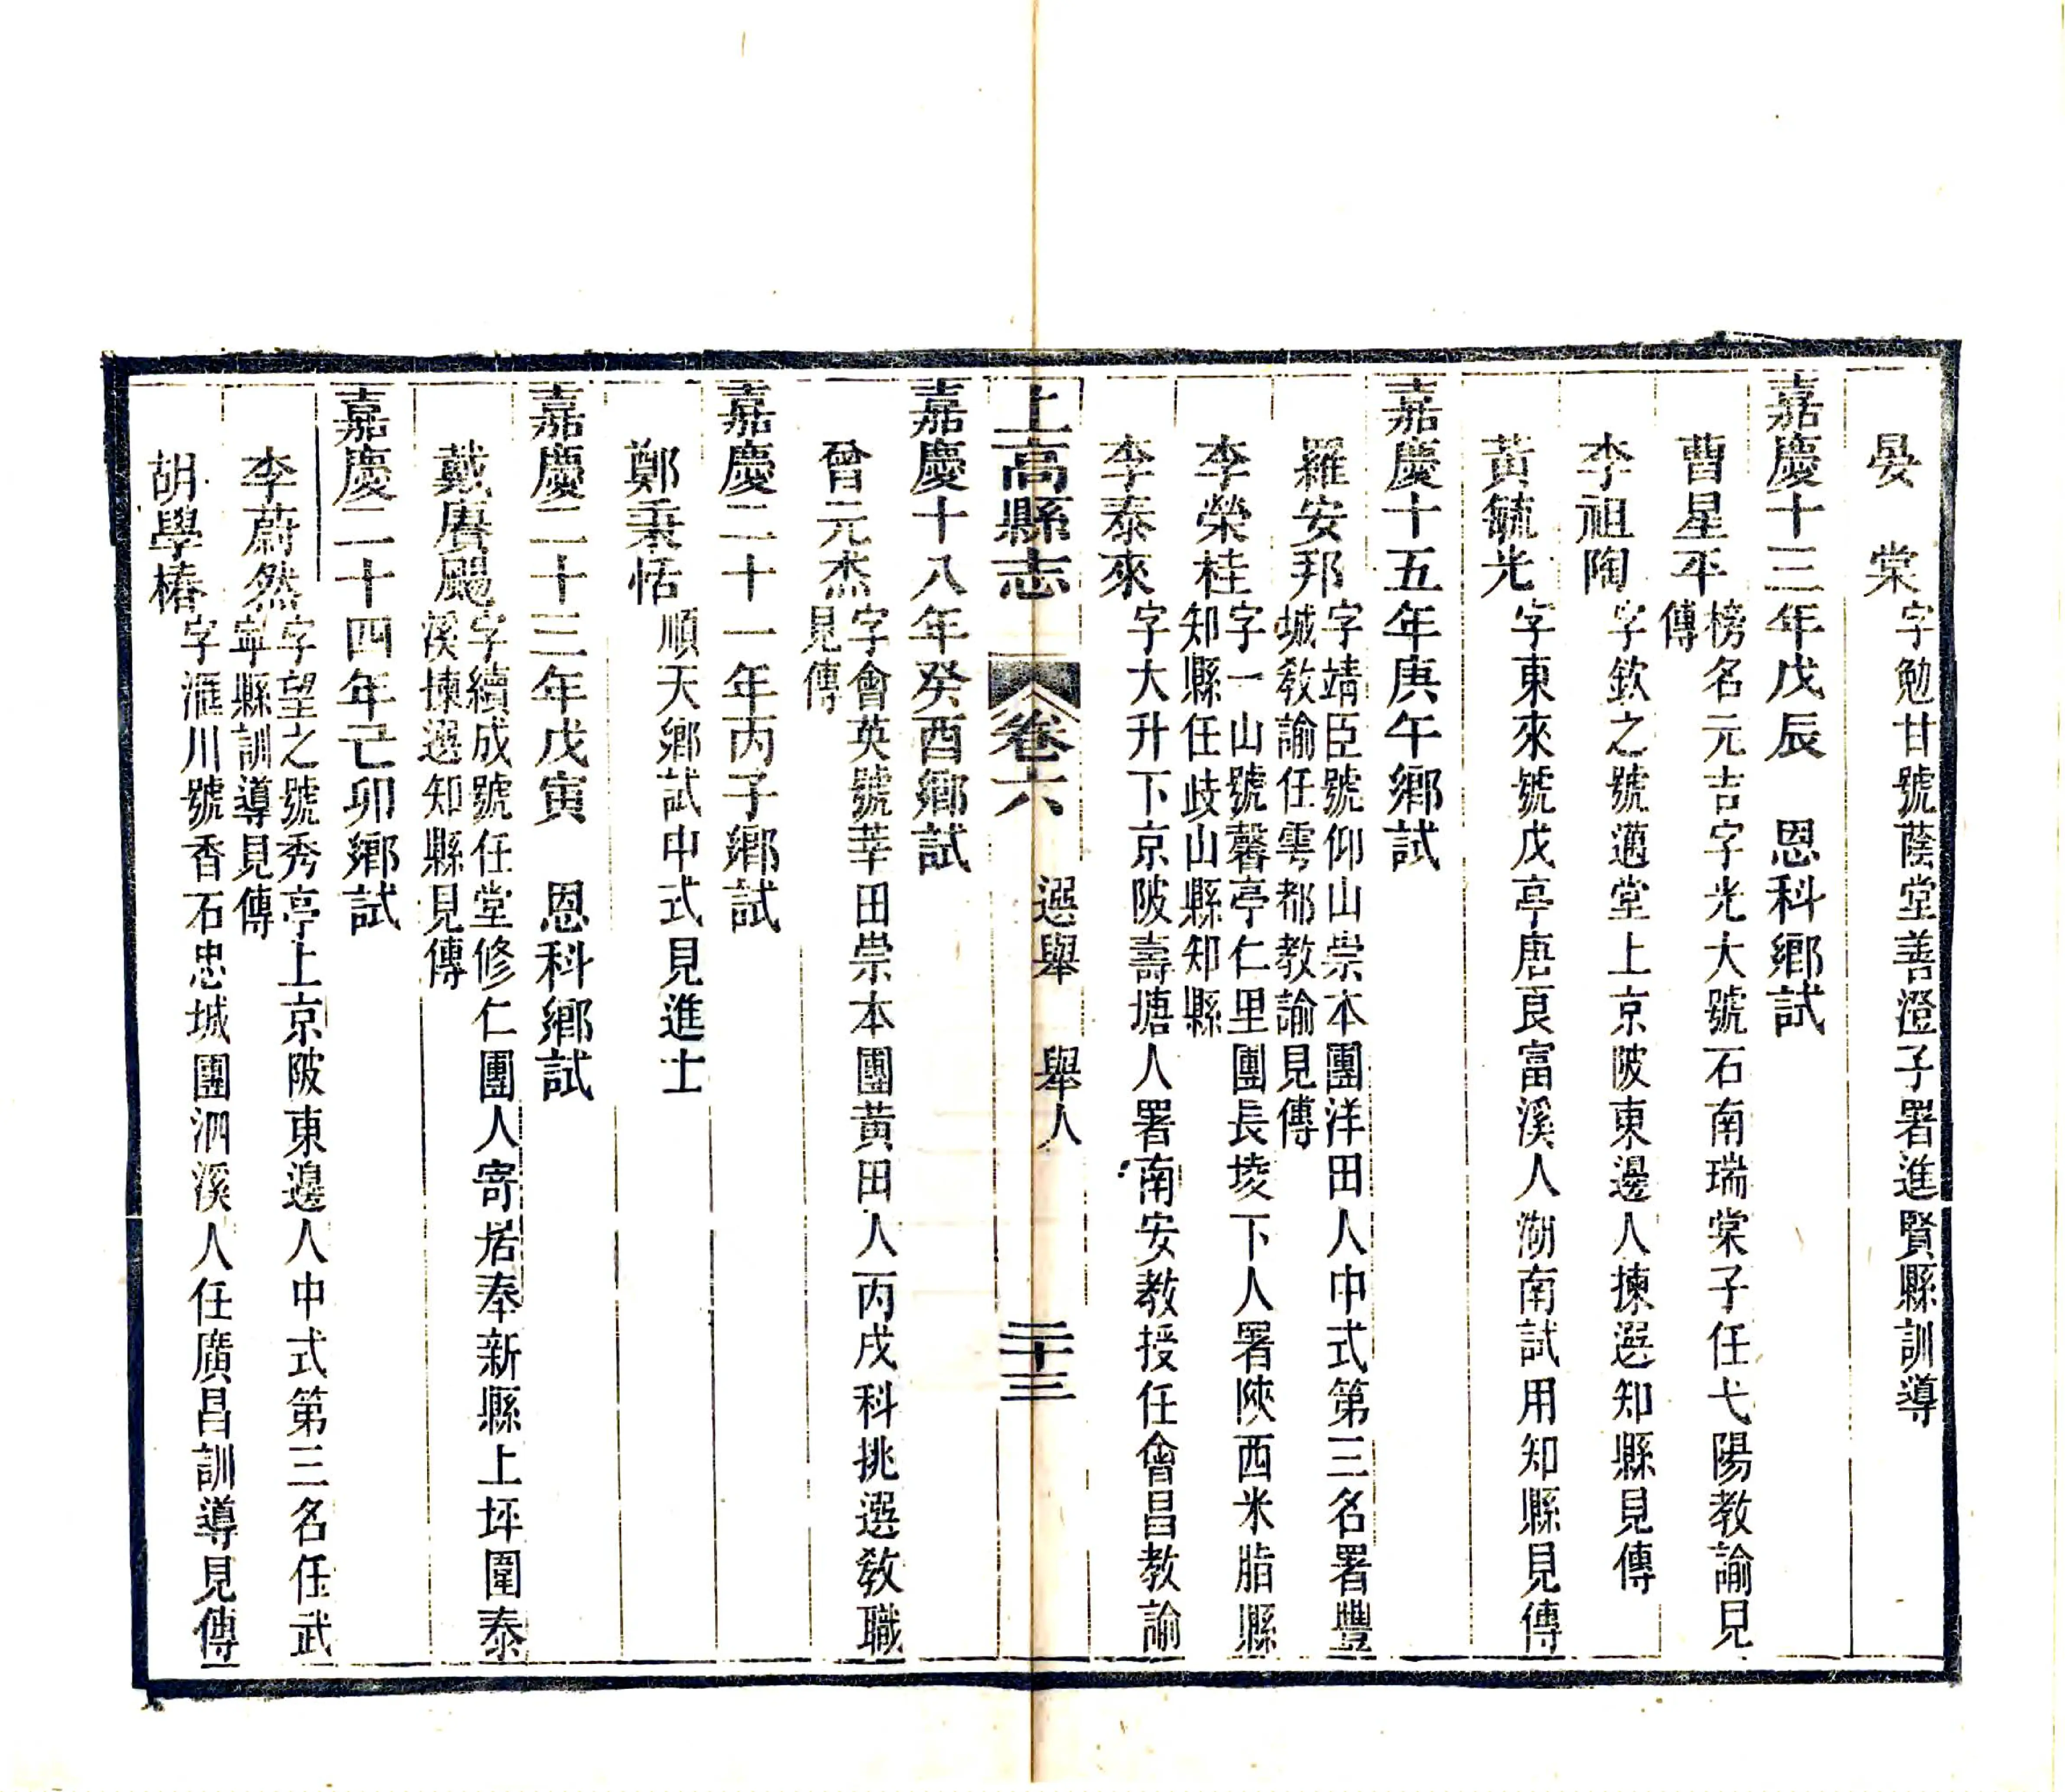 晏　棠字勉甘號蔭堂善澄子署進賢縣訓導
嘉慶十三年戊辰　恩科鄉試
曹星平榜名元吉字光大號石南瑞棠子任弋陽教諭見
傳
李祖陶字欽之號邁堂上京陂東邊人揀選知縣見傳
黃毓光字東來號戊亭唐良富溪人湖南試用知縣見傳
嘉慶十五年庚午鄉試
羅安邦字靖臣號仰山崇本團洋田人中式第三名署豐
城教諭任雩都教諭見傳
李榮桂字一山號馨亭仁里團長埈下人署陝西米脂縣
知縣任歧山縣知縣
李泰來字大升下京陂壽塘人署南安教授任會昌教諭
上高縣志　卷六　選舉　舉人　二十三
嘉慶十八年癸酉鄉試
曾元杰字會英號莘田崇本團黃田人丙戌科挑選敎職
見傳
嘉慶二十一年丙子鄉試
鄭秉恬順天鄉試中式見進士
嘉慶二十三年戊寅　恩科鄉試
戴賡颺字續成號任堂修仁團人寄居奉新縣上坪圍泰
溪揀選知縣見傳
嘉慶二十四年己卯鄉試
李蔚然字望之號秀亭上京陂東邊人中式第三名任武
寧縣訓導見傳
胡學椿字滙川號香石忠城團泗溪人任廣昌訓導見傳